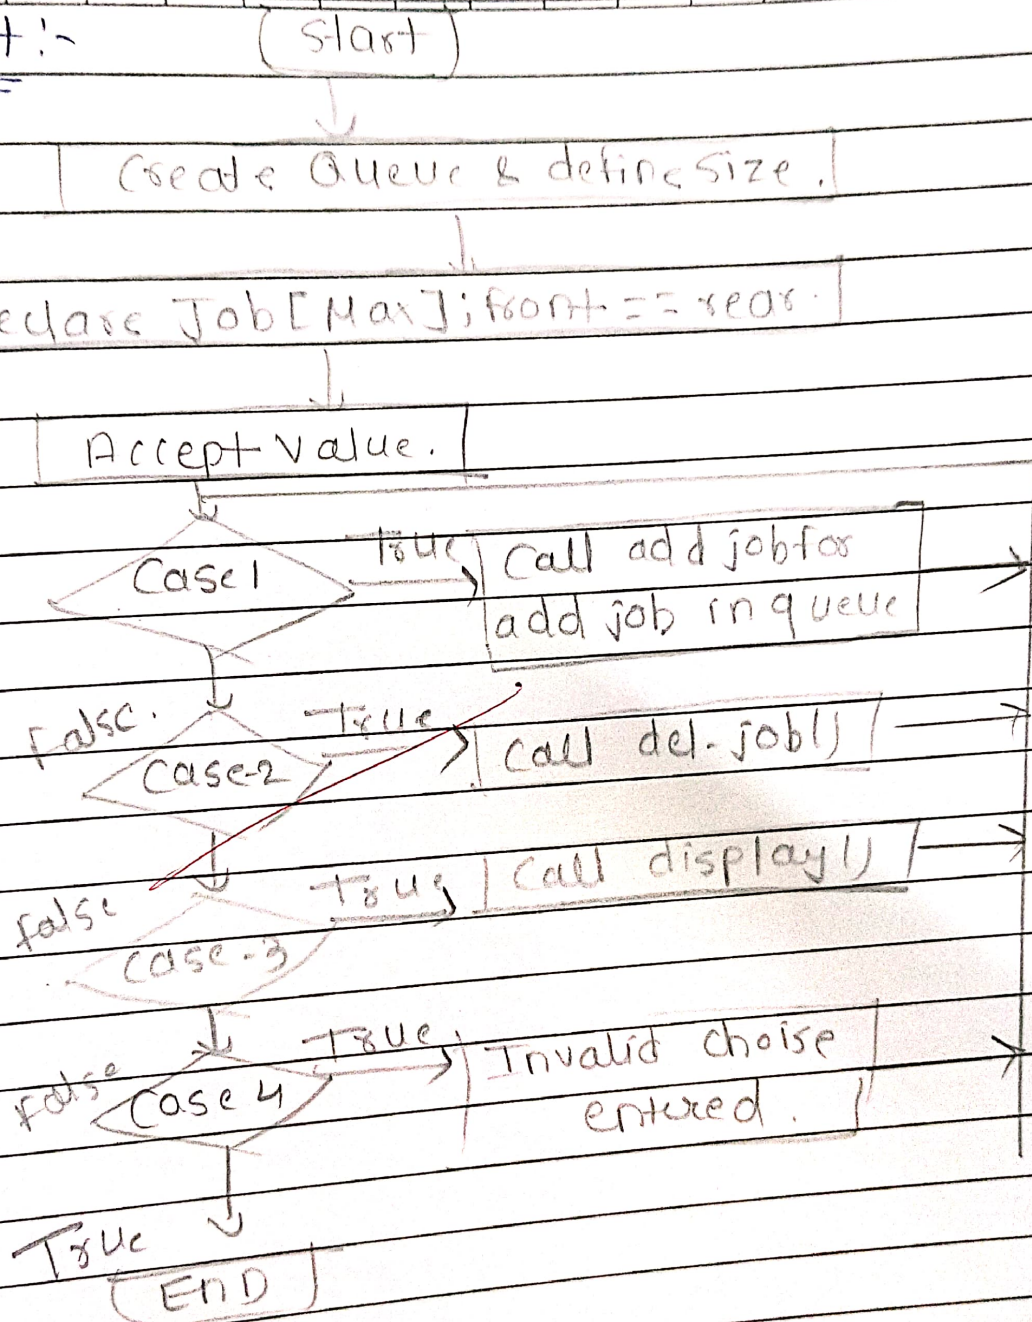 t :-
Start
Create Queue & define size.
eclare Job[Max]; front == rear.
Accept value.
Case1
True
Call add job for
add job in queue
False.
True
Case-2
Call del-job()
False
True
Call display()
Case-3
False
True
Invalid choise
entered.
Case 4
True
END